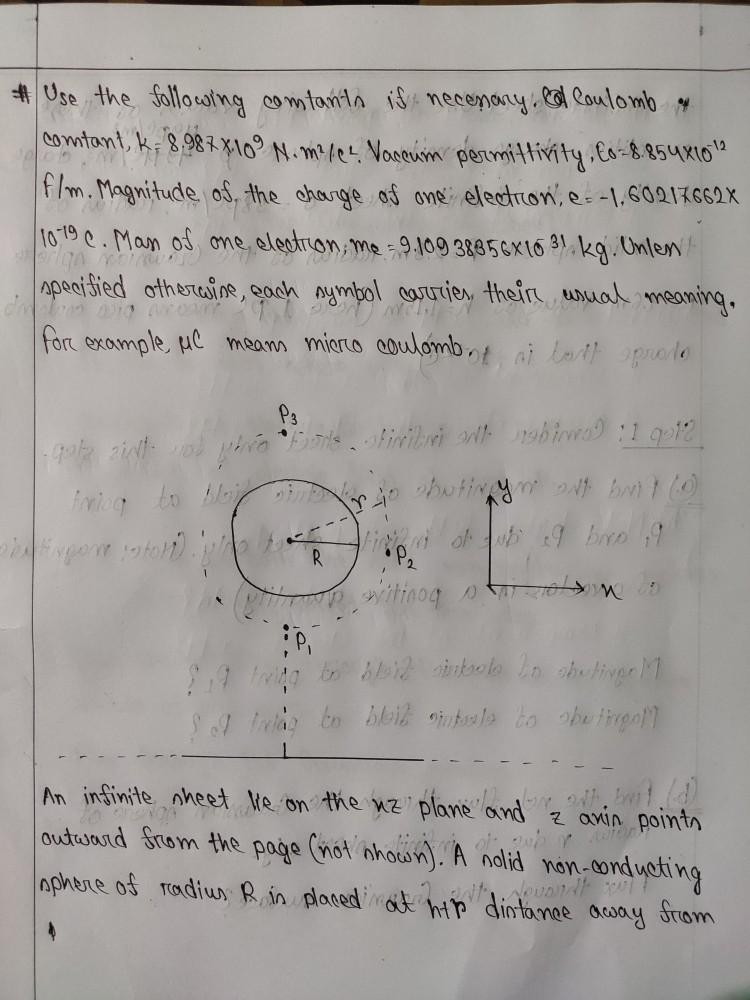 # Use the following constants if necessary. Coulomb
constant, k = 8.987×10⁹ N.m²/c². Vaccum permittivity, ϵ0=8.854×10⁻¹²
F/m. Magnitude of the charge of one electron, e = -1.60217662×
10⁻¹⁹ C. Mass of one electron, me = 9.10938356×10⁻³¹ kg. Unless
specified otherwise, each symbol carries their usual meaning.
For example, μC means micro coulomb.
P3
r
y
R
P2
x
P1
An infinite sheet lie on the xz plane and z axis points
outward from the page (not shown). A solid non-conducting
sphere of radius R is placed at h+r distance away from